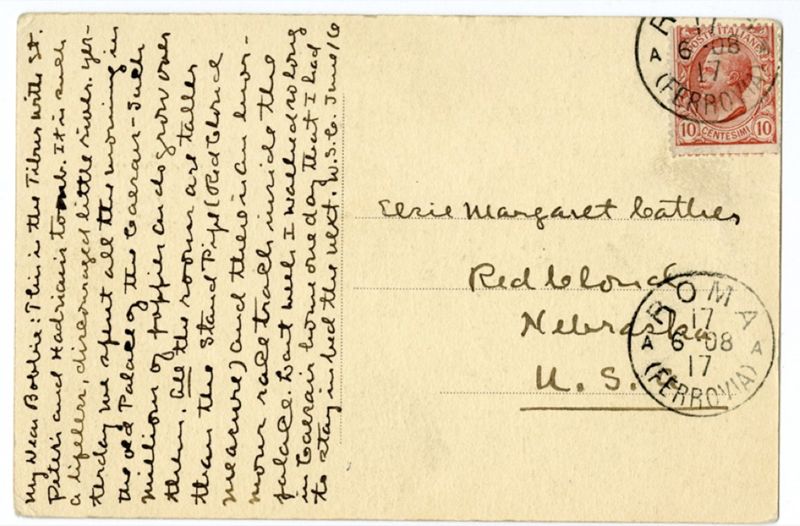 My Dear Bobbie: This is the Tibur with St.
Peter's and Hadrian's tomb. It is such
a lifeless, discouraged little river. Yes-
terday we spent all the morning in
the old Palace of the Caesars - Such
millions of poppies as do grow over
them. All the rooms are taller
than the Stand Pipe (Red Cloud
measure) and there is an enor-
mous race track inside the
palace. Last week I walked so long
in Caesar's house one day that I had
to stay in bed the next. W.S.C. June 16
Elsie Margaret Cather
Red Cloud
Nebraska
U. S.
POSTE ITALIANE
10 CENTESIMI 10
R
17
A 6 - 08
17
(FERROVIA)
ROMA
17
A 6 - 08 A
17
(FERROVIA)